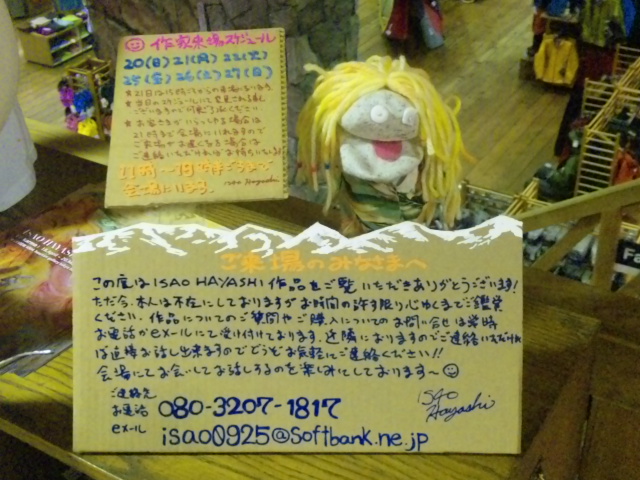 作家来場スケジュール
20(日)21(月)22(火)
25(金)26(土)27(日)
11時〜19時半ごろまで
会場にいます。
Isao Hayashi
ご来場のみなさまへ
この度はISAO HAYASHI作品をご覧いただきありがとうございます!
ただ今、本人は不在にしておりますがお時間の許す限り心ゆくまでご鑑賞
ください。作品についてのご質問やご購入についてのお問い合せは常時
お電話かeメールにて受け付けております。近隣におりますのでご連絡いただけれ
ば直接お話し出来ますのでどうぞお気軽にご連絡ください!!
会場にてお会いしてお話しするのを楽しみにしております〜
ご連絡先
お電話 080-3207-1817
eメール isao0925@softbank.ne.jp
ISAO Hayashi